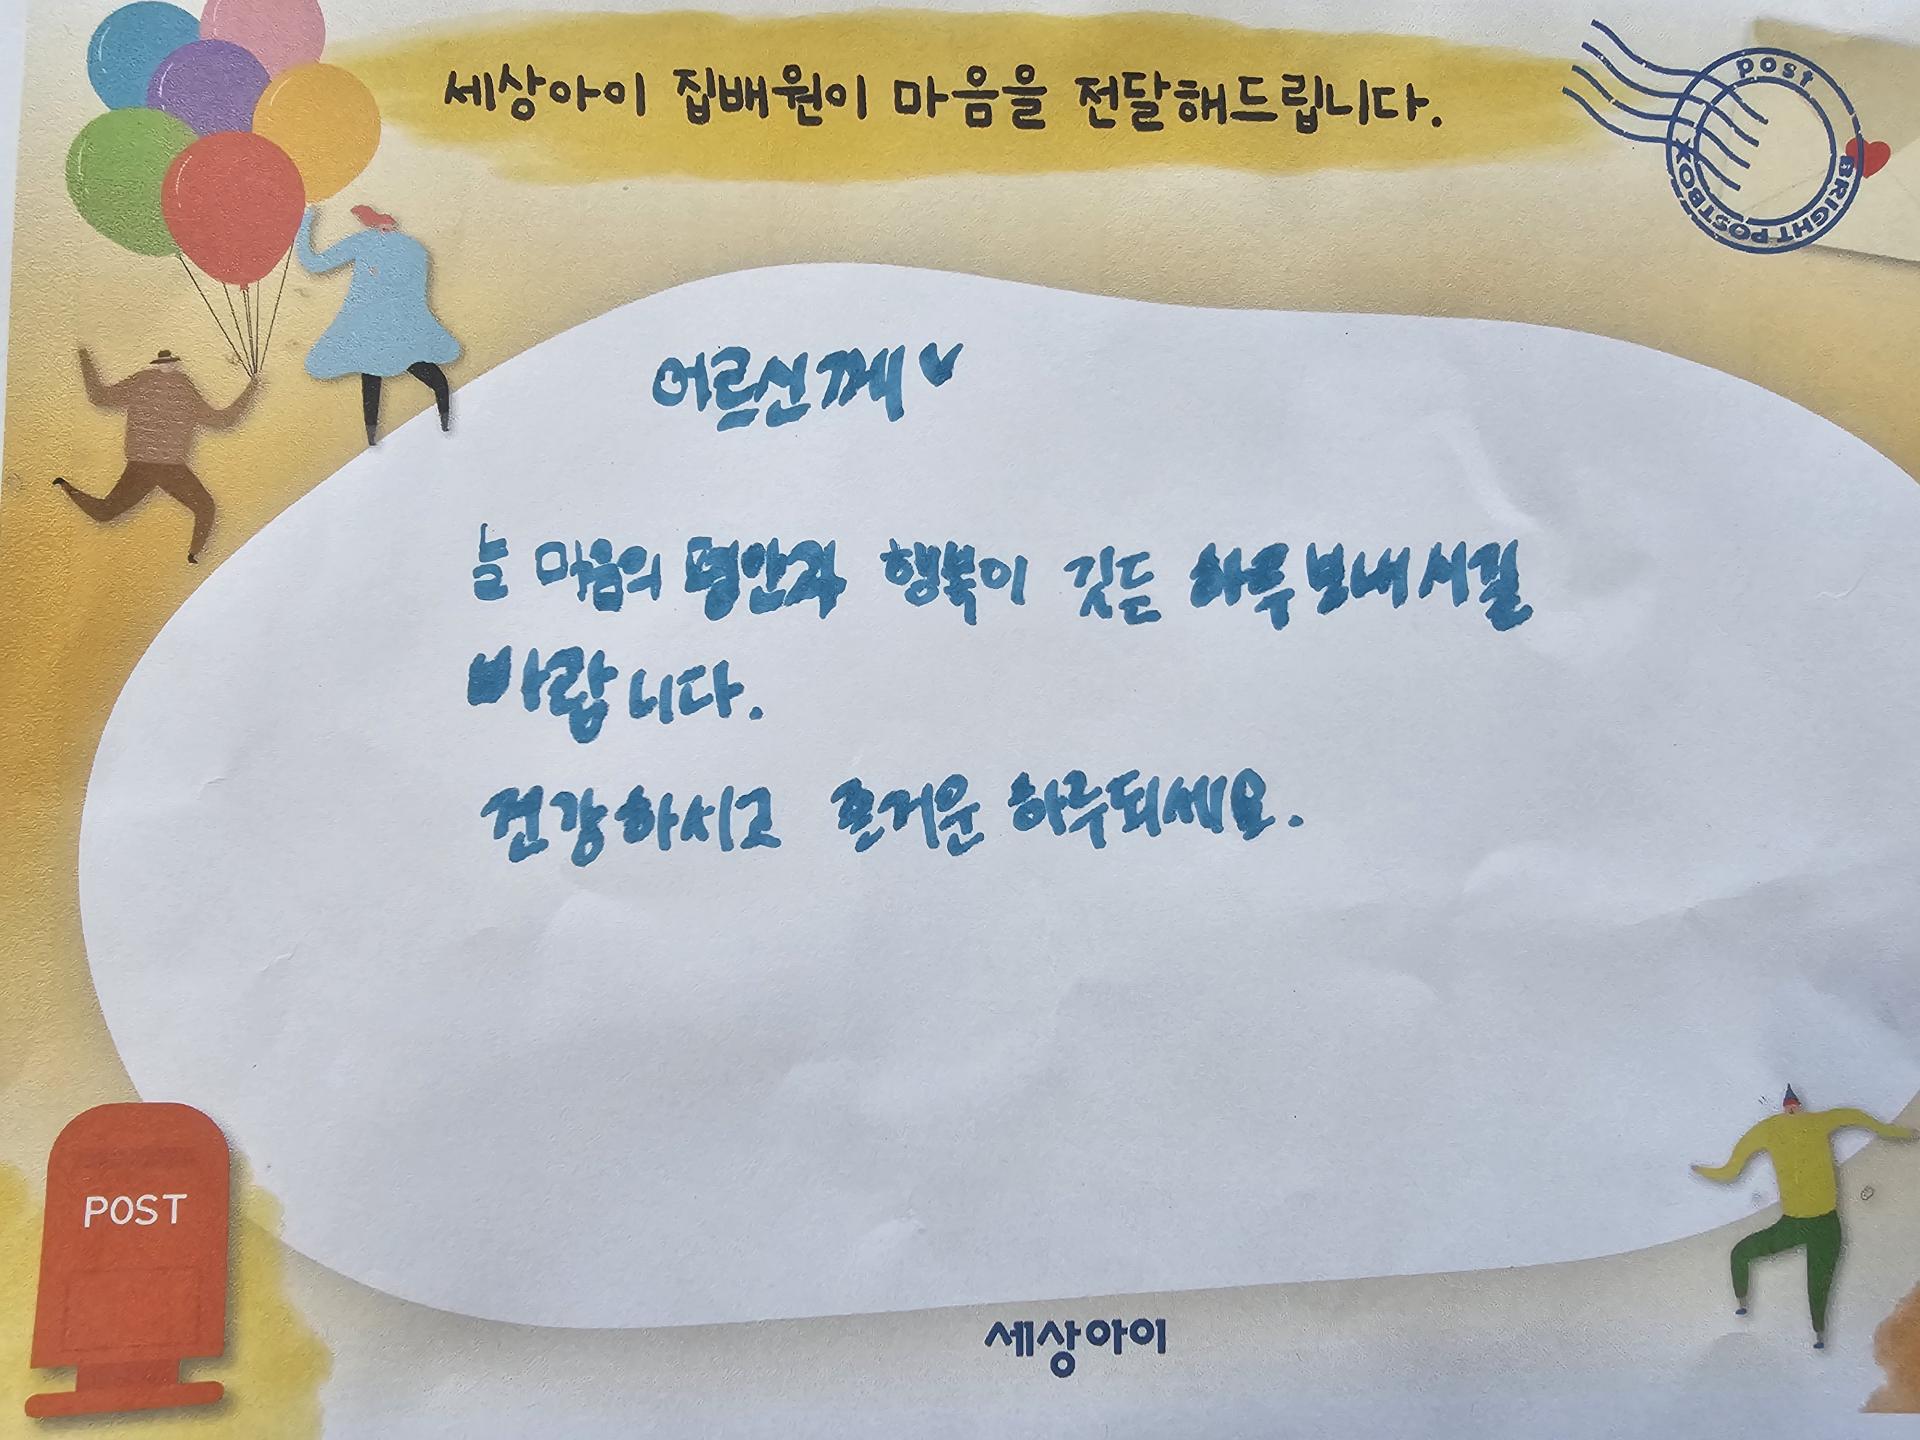 세상아이 집배원이 마음을 전달해드립니다.
post
BRIGHT POSTBOX
어르신께♥
늘 마음의 평안과 행복이 깃든 하루보내시길
바랍니다.
건강하시고 즐거운 하루되세요.
POST
세상아이